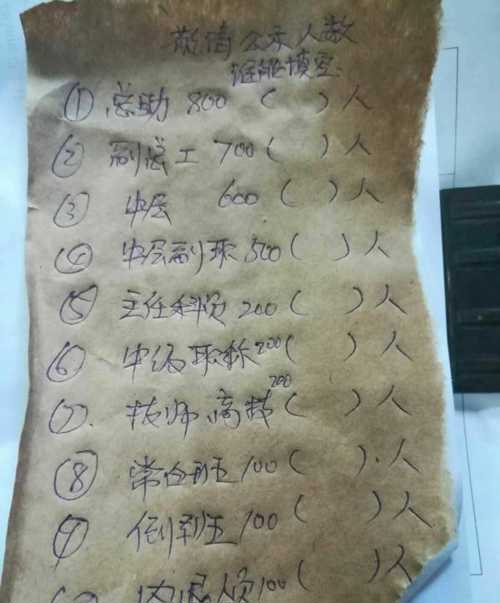 敬请公示人数
谁能填空:
① 总助 800 ( ) 人
② 副总工 700 ( ) 人
③ 中层 600 ( ) 人
④ 中层副职 500 ( ) 人
⑤ 主任科员 200 ( ) 人
⑥ 中级职称 200 ( ) 人
⑦. 技师.高技 200 ( ) 人
⑧ 常白班 100 ( ). 人
⑨ 倒班 100 ( ) 人
内退人员 100 ( ) 人